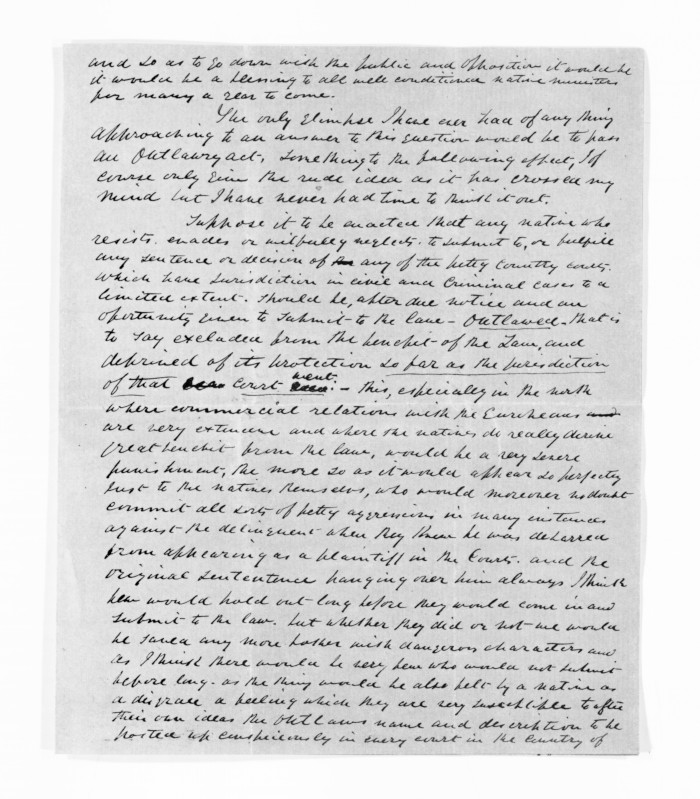 and so as to go down with the public and opposition it would be
it would be a blessing to all well conditioned native ministers
for many a year to come.
The only glimpse I have ever had of any thing
approaching to an answer to this question would be to pass
an Outlawry act, something to the following effect, I of
course only give the rude idea as it has crossed my
mind but I have never had time to think it out.
Suppose it to be enacted that any native who
resists. evades or wilfully neglects. to submit to, or fulfill
any sentence or decision of any of the petty country courts.
which have jurisdiction in civil and Criminal cases to a
limited extent. should be, after due notice and an
oportunity given to submit to the law - Outlawed. that is
to say excluded from the benefit of the Law, and
deprived of its protection so far as the jurisdiction
of that court went. - this, especially in the north
where commercial relations with the Europeans and
are very extensive and where the natives do really derive
great benefit from the law, would be a very severe
punishment, the more so as it would appear so perfectly
just to the natives themselvs, who would moreover no doubt
commit all sorts of petty aggressions in many instances
against the delinquent when they knew he was debarred
from appearing as a plaintiff in the Courts. and the
original sententence hanging over him always I think
few would hold out long before they would come in and
submit to the law. but whether they did or not we would
be saved any more bother with dangerous characters and
as I think there would be very few who would not submit
before long. as the thing would be also felt by a native as
a disgrace, a feeling which they are very susceptible to after
their own ideas the outlaws name and description to be
posted up conspicuously in every court in the country of